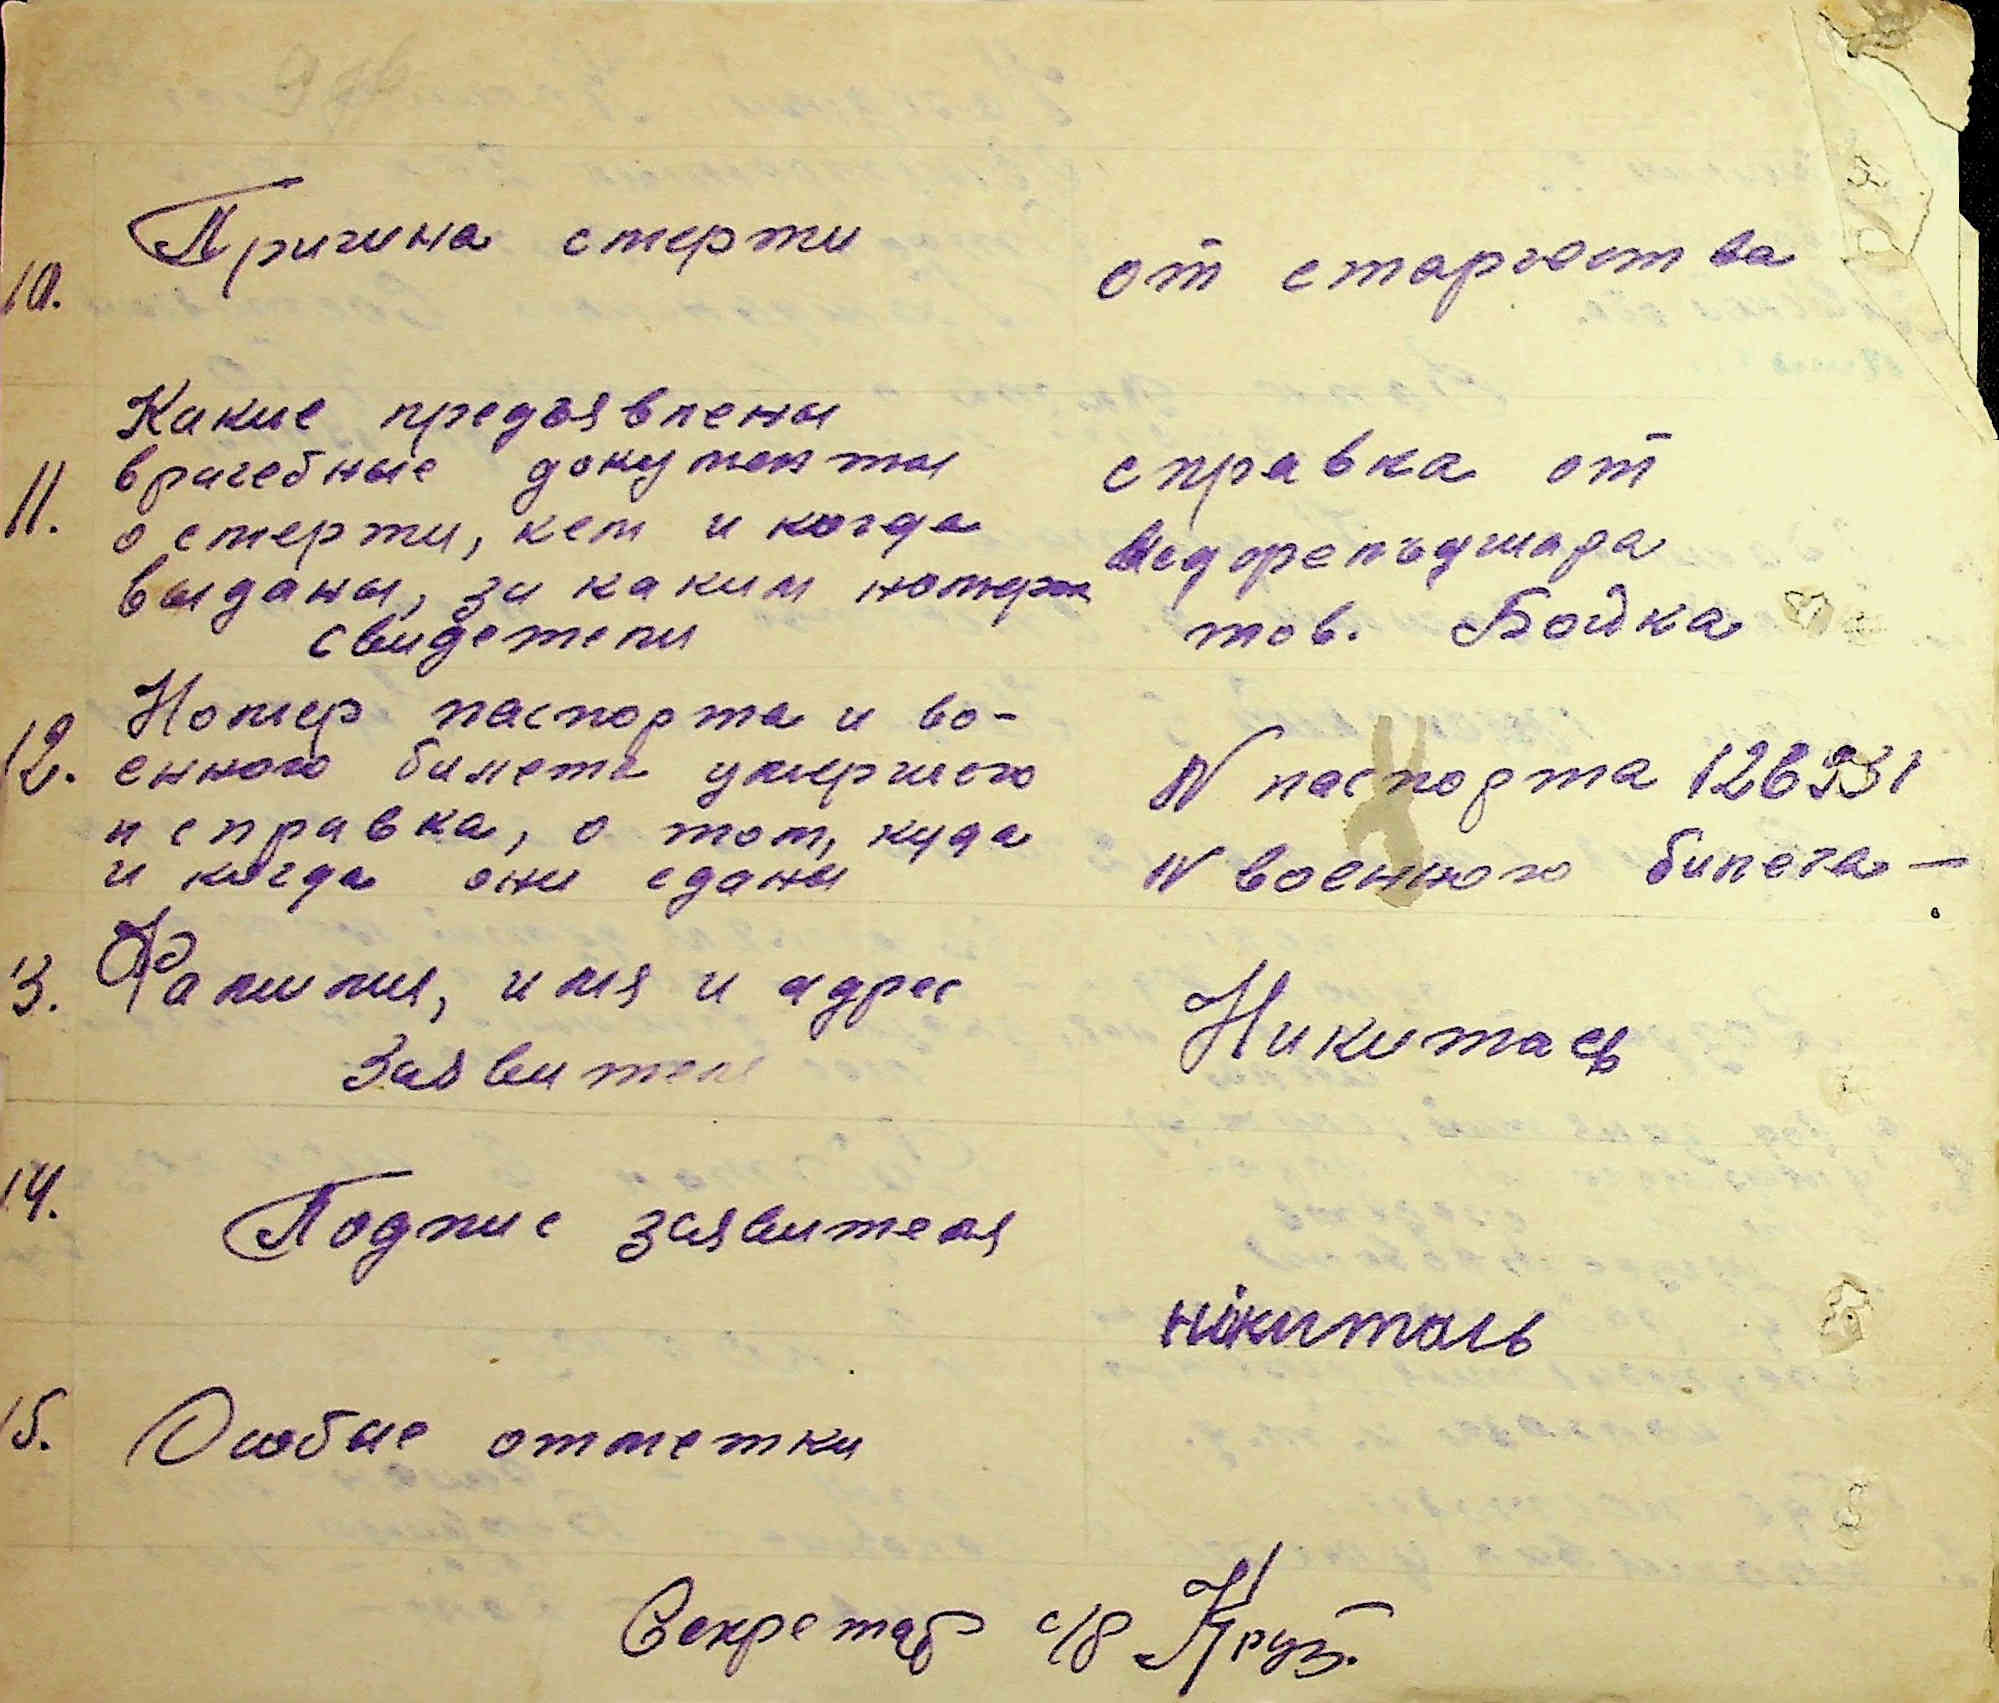 10. Причина смерти
от старости
11. Какие предъявлены
врачебные документы
о смерти, кем и когда
выданы, за каким номером
свидетели
справка от
медфельдшера
тов. Бойка
12. Номер паспорта и во-
енного билета умершого
и справка, о том, куда
и когда они сданы
N паспорта 126931
N военного билета —
13. Фамилия, имя и адрес
заявителя
Никитась
14. Подпис заявителя
нікитась
15. Особые отметки
Секретар с/в